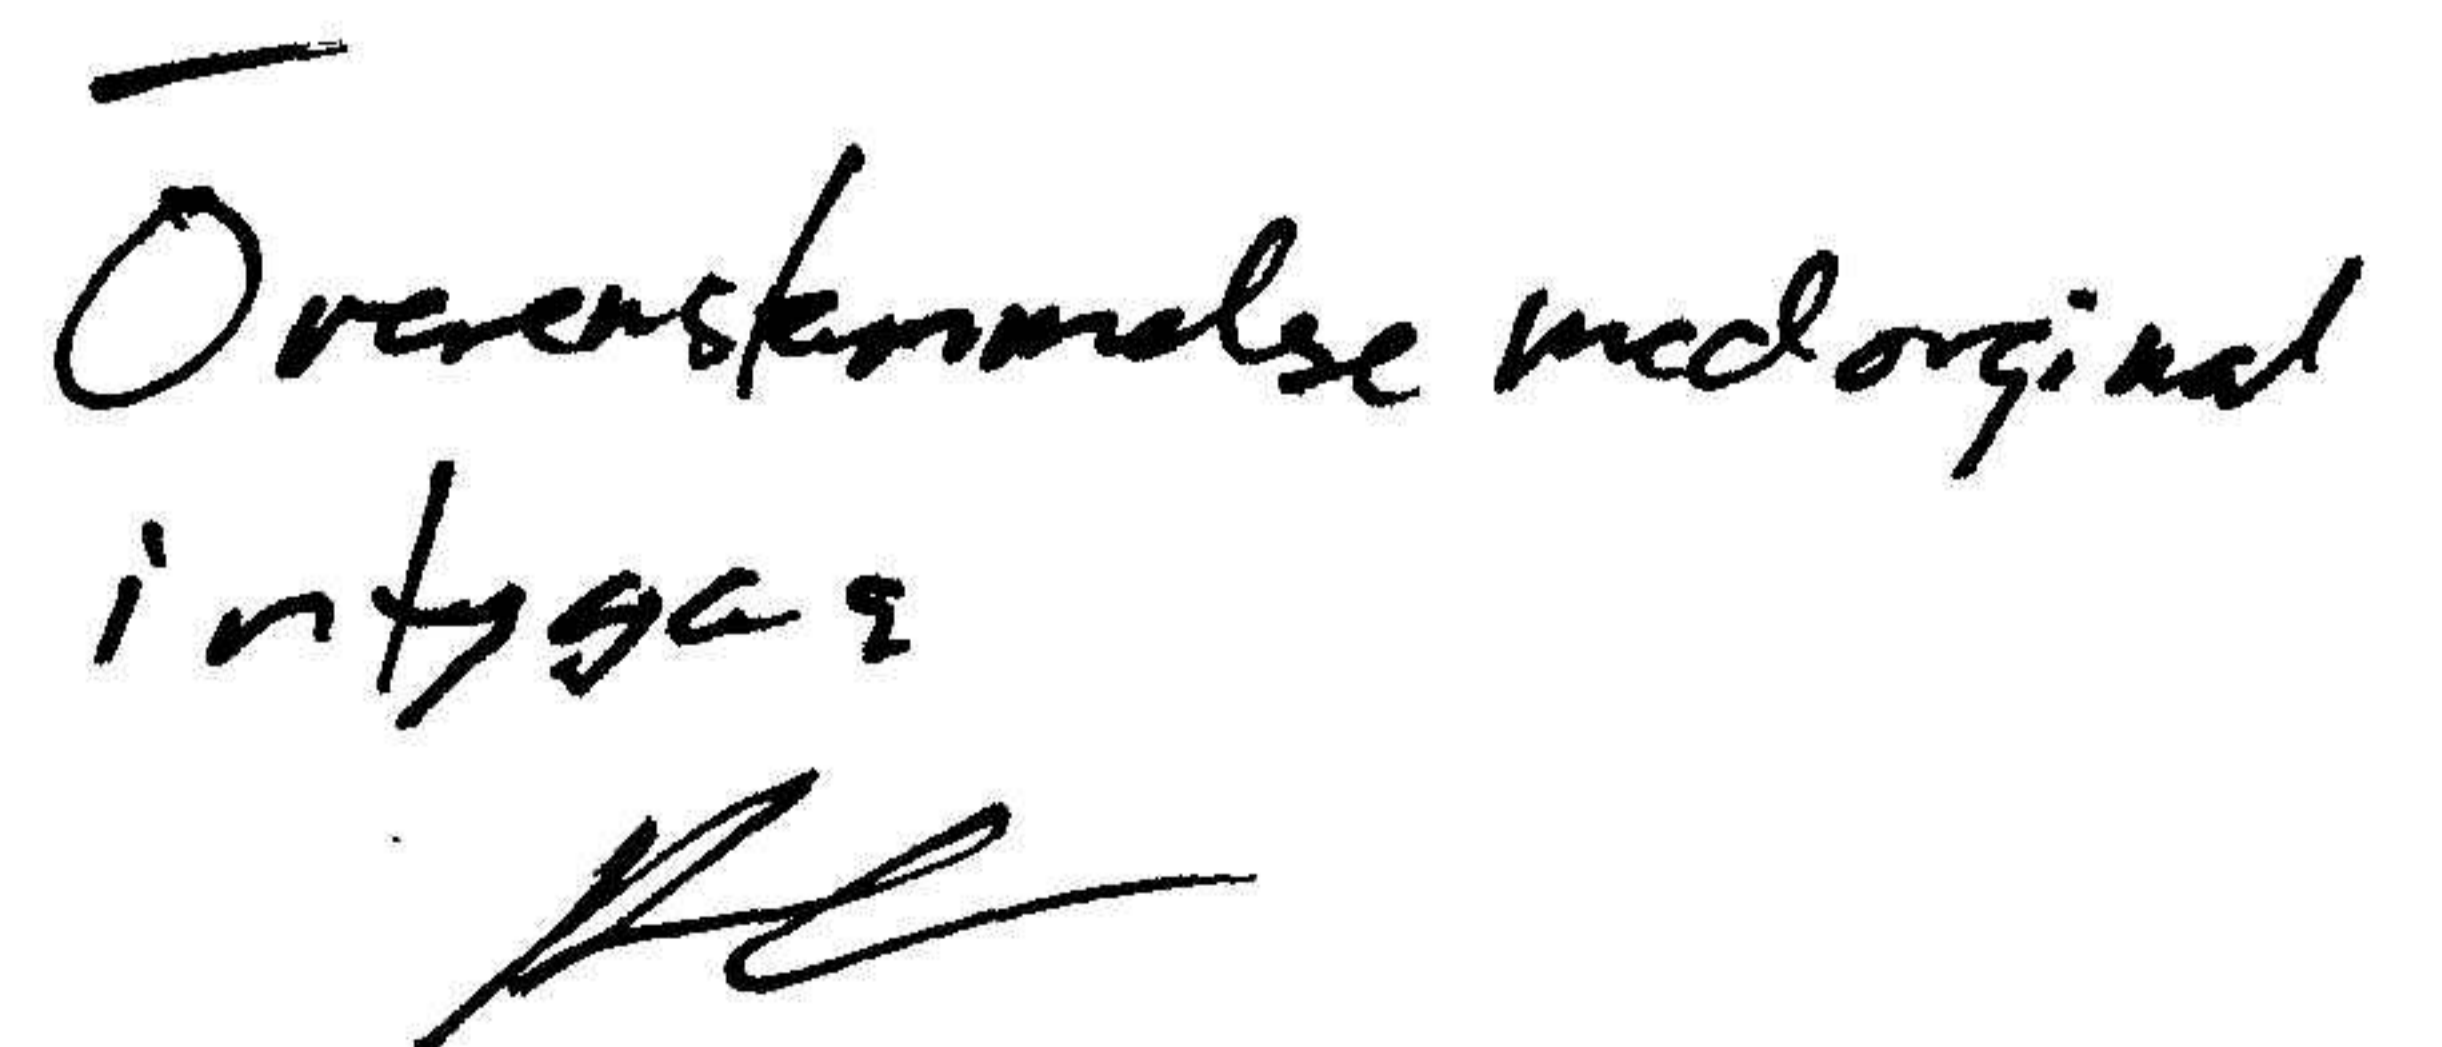 Överensstämmelse med orginal
intygas